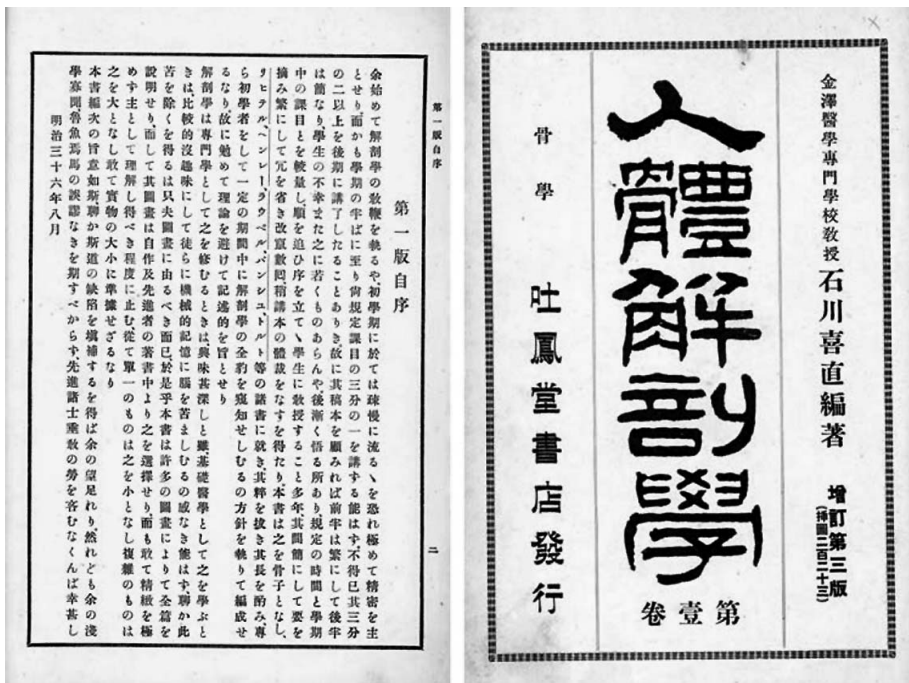 金澤醫學專門學校敎授 石川喜直編著
增訂第三版
(揷圖二百二十三)
人體解剖學
第壹卷
骨學
吐鳳堂書店發行
第一版自序
二
第一版自序
余始めて解剖學の敎鞭を執るや、初學期に於ては疎慢に流るゝを恐れ極めて精密を主
とせり而かも學期の半ばに至り尙規定課目の三分の一を講ずる能はず、不得已其三分
の二以上を後期に講了したることありき、故に其稿本を顧みれば前半は繁にして後半
は簡なり、學生の不幸また之に若くものあらんや後漸く悟る所あり、規定の時間と學期
中の課目とを較量し、順を追ひ序を立てゝ學生に敎授すること多年、其間簡にして要を
摘み繁にして冗を省き改竄數囘稍講本の體裁をなすを得たり、本書は之を骨子となし、
リヒテル、ヘンレー、ラウベル、バンシュ、トルト等の諸書に就き、其粹を拔き其長を酌み專
ら初學者をして一定の期間中に解剖學の全豹を窺知せしむるの方針を執りて編成せ
るなり故に勉めて理論を避けて記述的を旨とせり
解剖學は專門學として之を修むるときは、興味甚深しと雖、基礎醫學として之を學ぶと
きは、比較的沒趣味にして徒らに機械的記憶に腦を苦ましむるの感なき能はず、聊か此
苦を除くを得るは只夫圖畫に由るべき而已、於是乎本書は許多の圖畫によりて全篇を
說明せり而して其圖畫は自作及先進者の著書中より之を選擇せり、而も敢て精緻を極
めず主として理解し得べき程度に止む從て單一のものは之を小となし複雜のものは
之を大となし敢て實物の大小に準據せざるなり
本書編次の旨意如斯聊か斯道の缺陷を塡補するを得ば余の望足れり、然れども余の淺
學寡聞、魯魚焉馬の誤謬なきを期すべからず、先進諸士垂敎の勞を吝むなくんば幸甚し
明治三十六年八月